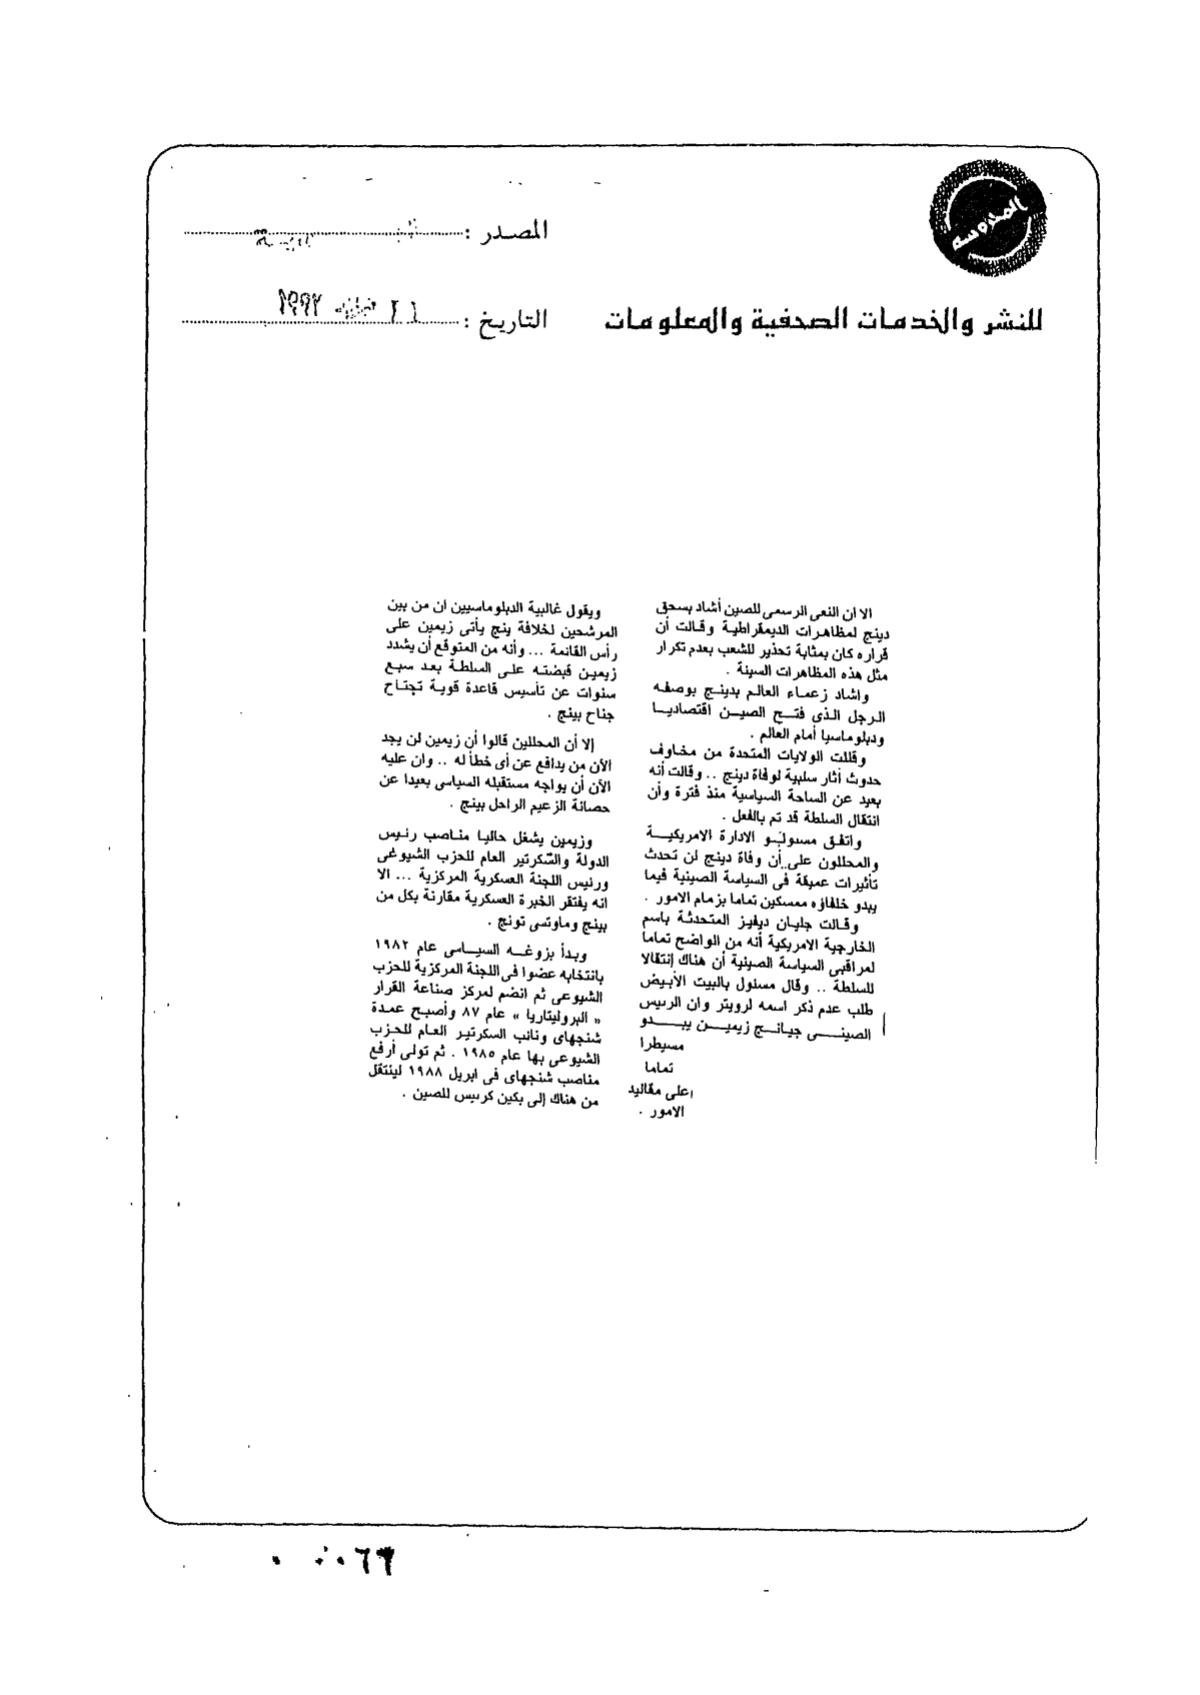 المصدر :
للنشر والخدمات الصحفية والمعلومات
التاريخ : ٢١ فبراير ١٩٩٧
الا ان النعى الرسمى للصين أشاد بسحق
دينج لمظاهرات الديمقراطية وقالت أن
قراره كان بمثابة تحذير للشعب بعدم تكرار
مثل هذه المظاهرات السيئة .
واشاد زعماء العالم بدينج بوصفه
الرجل الذى فتح الصين اقتصاديا
ودبلوماسيا أمام العالم .
وقللت الولايات المتحدة من مخاوف
حدوث أثار سلبية لوفاة دينج .. وقالت أنه
بعيد عن الساحة السياسية منذ فترة وأن
انتقال السلطة قد تم بالفعل .
واتفق مسئولو الادارة الامريكية
والمحللون على أن وفاة دينج لن تحدث
تأثيرات عميقة فى السياسة الصينية فيما
يبدو خلفاؤه ممسكين تماما بزمام الامور .
وقالت جليان ديفيز المتحدثة باسم
الخارجية الامريكية أنه من الواضح تماما
لمراقبى السياسة الصينية أن هناك إنتقالا
للسلطة .. وقال مسئول بالبيت الأبيض
طلب عدم ذكر اسمه لرويتر وان الرئيس
الصينى جيانج زيمين يبدو
مسيطرا
تماما
على مقاليد
الامور .
ويقول غالبية الدبلوماسيين ان من بين
المرشحين لخلافة ينج يأتى زيمين على
رأس القائمة ... وأنه من المتوقع أن يشدد
زيمين قبضته على السلطة بعد سبع
سنوات عن تأسيس قاعدة قوية تجتاح
جناح بينج .
إلا أن المحللين قالوا أن زيمين لن يجد
الآن من يدافع عن أى خطأ له .. وان عليه
الآن أن يواجه مستقبله السياسى بعيدا عن
حصانة الزعيم الراحل بينج .
وزيمين يشغل حاليا مناصب رئيس
الدولة والسكرتير العام للحزب الشيوعى
ورئيس اللجنة العسكرية المركزية ... الا
انه يفتقر الخبرة العسكرية مقارنة بكل من
بينج وماوتسى تونج .
وبدأ بزوغه السياسى عام ١٩٨٢
بانتخابه عضوا فى اللجنة المركزية للحزب
الشيوعى ثم انضم لمركز صناعة القرار
« البروليتاريا » عام ٨٧ وأصبح عمدة
شنجهاى ونائب السكرتير العام للحزب
الشيوعى بها عام ١٩٨٥ . ثم تولى أرفع
مناصب شنجهاى فى ابريل ١٩٨٨ لينتقل
من هناك إلى بكين كرئيس للصين .